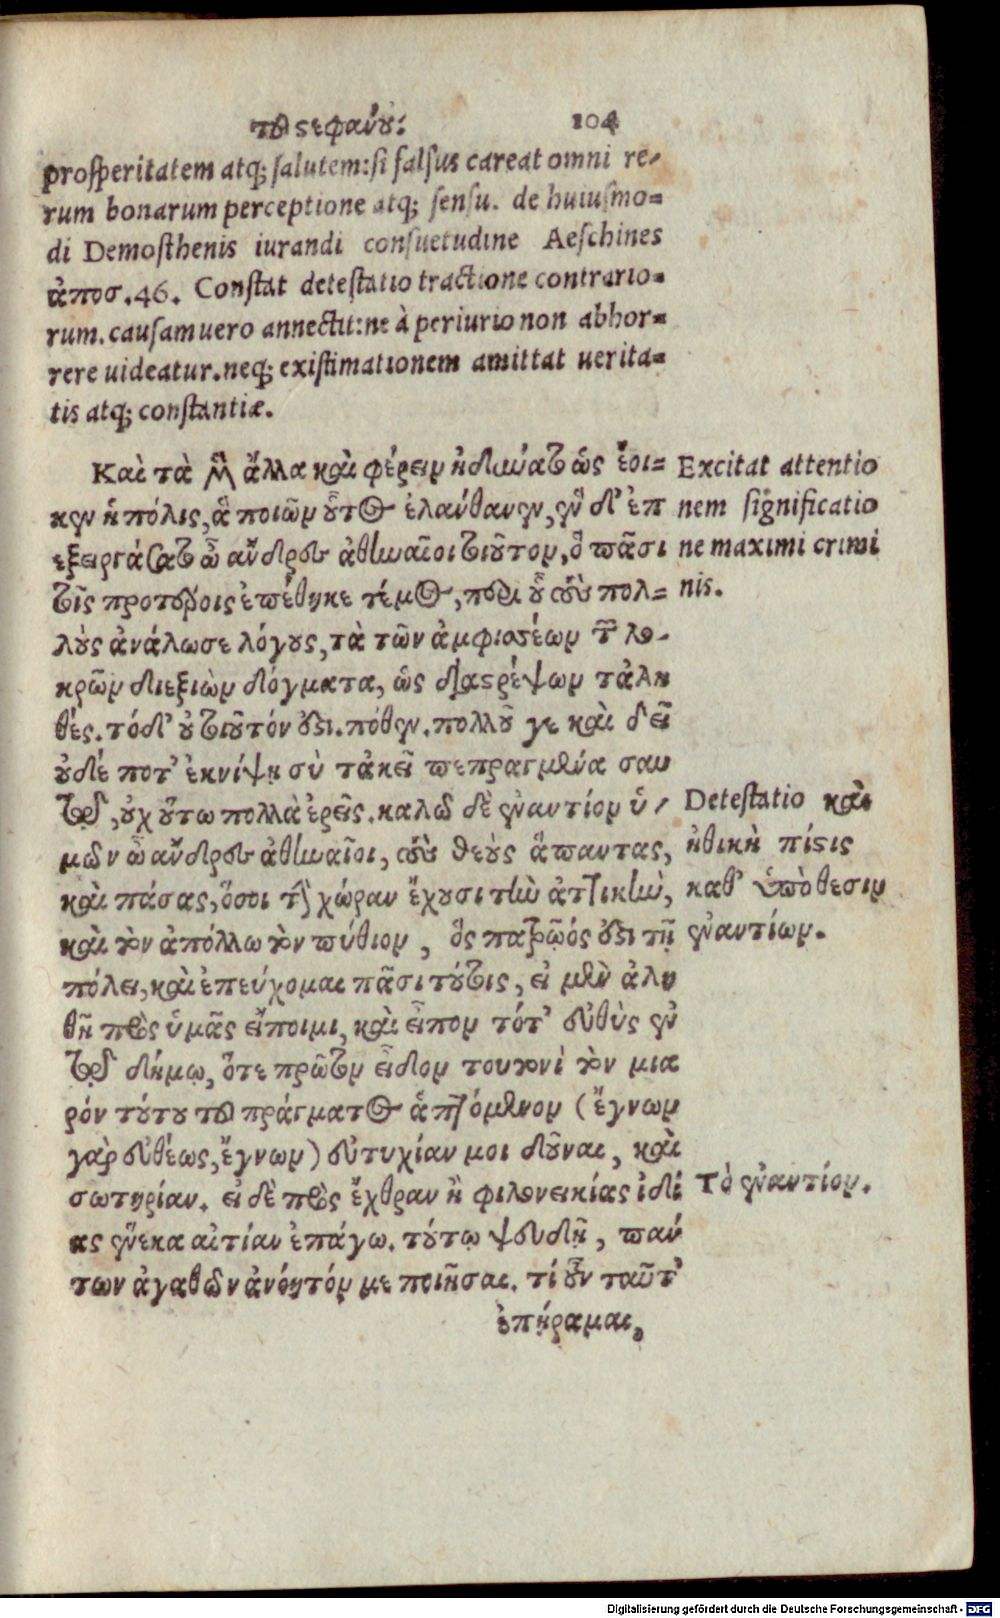 τοῦ στεφάνου. 104
prosperitatem atq; salutem: si falsus careat omni re-
rum bonarum perceptione atq; sensu. de huiusmo-
di Demosthenis iurandi consuetudine Aeschines
ἀποσ. 46. Constat detestatio tractione contrario-
rum. causam uero annectit: ne à periurio non abhor-
rere uideatur. neq; existimationem amittat uerita-
tis atq; constantiæ.
Καὶ τὰ μὲν ἄλλα καὶ φέρειν ἠδύναθ' ὡς ἔοι-
κεν ἡ πόλις, ἃ ποιῶν οὗτος ἐλάνθανεν, ἓν δ' ἐπ
εξειργάσατο ὦ ἄνδρες ἀθηναῖοι τοιοῦτον, ὃ πᾶσι
τοῖς προτέροις ἐπέθηκε τέλος, περὶ οὗ τοὺς πολ-
λοὺς ἀνάλωσε λόγους, τὰ τῶν ἀμφισσέων τῶν λο-
κρῶν διεξιὼν δόγματα, ὡς διαστρέψων τἀλη
θές. τό δ' οὐ τοιοῦτόν ἐστι. πόθεν. πολλοῦ γε καὶ δεῖ
οὐδέ ποτ' ἐκνίψῃ σὺ τἀκεῖ πεπραγμένα σαυ
τῷ, οὐχ οὕτω πολλὰ ἐρεῖς. καλῶ δὲ ἐναντίον ὑ-
μῶν ὦ ἄνδρες ἀθηναῖοι, τοὺς θεοὺς ἅπαντας,
καὶ πάσας, ὅσοι τὴν χώραν ἔχουσι τὴν ἀττικήν,
καὶ τὸν ἀπόλλω τὸν πύθιον, ὃς πατρῷός ἐστι τῇ
πόλει, καὶ ἐπεύχομαι πᾶσι τούτοις, εἰ μὲν ἀλη
θῆ πρὸς ὑμᾶς εἴποιμι, καὶ εἶπον τότ' εὐθὺς ἐν
τῷ δήμῳ, ὅτε πρῶτον εἶδον τουτονὶ τὸν μια
ρὸν τούτου τοῦ πράγματος ἁπτόμενον (ἔγνων
γὰρ εὐθέως, ἔγνων) εὐτυχίαν μοι δοῦναι, καὶ
σωτηρίαν. εἰ δὲ πρὸς ἔχθραν ἢ φιλονεικίας ἰδί
ας ἕνεκα αἰτίαν ἐπάγω. τούτῳ ψευδῆ, πάν
των ἀγαθῶν ἀνόητόν με ποιῆσαι. τί οὖν ταῦτ'
ἐπήραμαι,
Excitat attentio
nem significatio
ne maximi crimi
nis.
Detestatio καὶ
ἠθικὴ πίστις
καθ' ὑπόθεσιν
ἐναντίων.
Τὸ ἐναντίον.
Digitalisierung gefördert durch die Deutsche Forschungsgemeinschaft - DFG